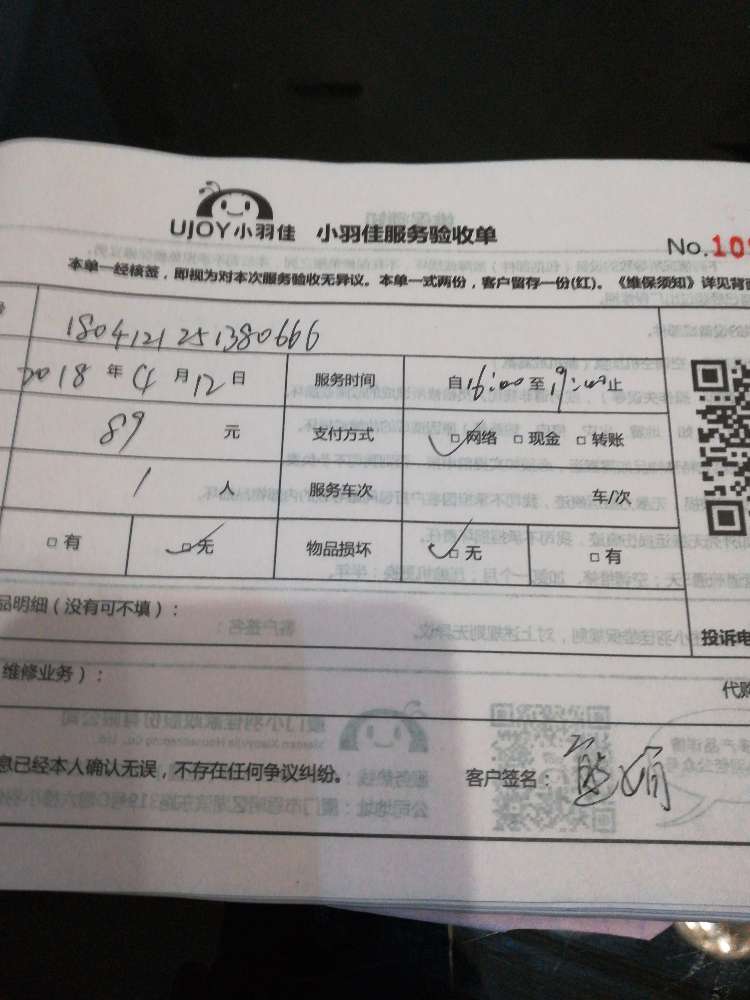 UJOY小羽佳 小羽佳服务验收单
No.10
本单一经核签，即视为对本次服务验收无异议。本单一式两份，客户留存一份(红)。《维保须知》详见背面
1804121251380666
2018 年 4 月 12 日 服务时间 自 16:00 至 19:00 止
89 元 支付方式 □ 网络 □ 现金 □ 转账
1 人 服务车次 车/次
□ 有 □ 无 物品损坏 □ 无 □ 有
品明细（没有可不填）： 投诉电
维修业务）： 代购
息已经本人确认无误，不存在任何争议纠纷。 客户签名：